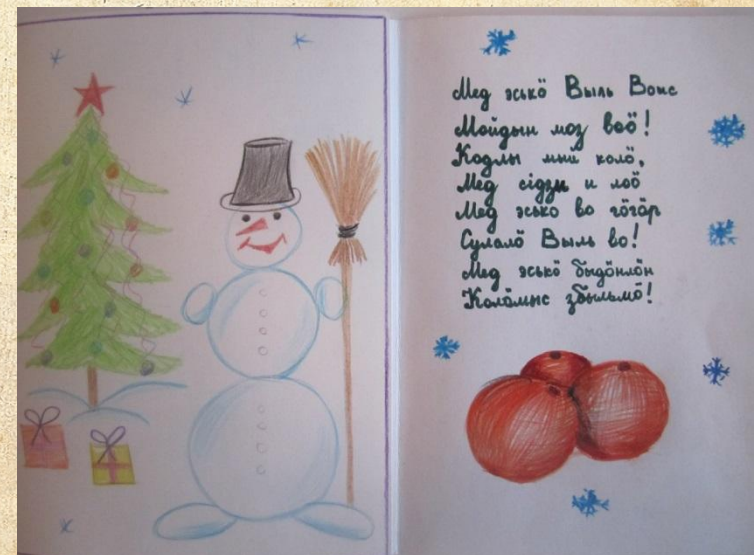 Мед эськӧ Выль Воыс
Мойдын моз воӧ!
Кодлы мый колӧ,
Мед сідзи и лоӧ
Мед эсько во гӧгӧр
Сулалӧ Выль во!
Мед эськӧ быдӧнлӧн
Колӧмыс збыльмӧ!